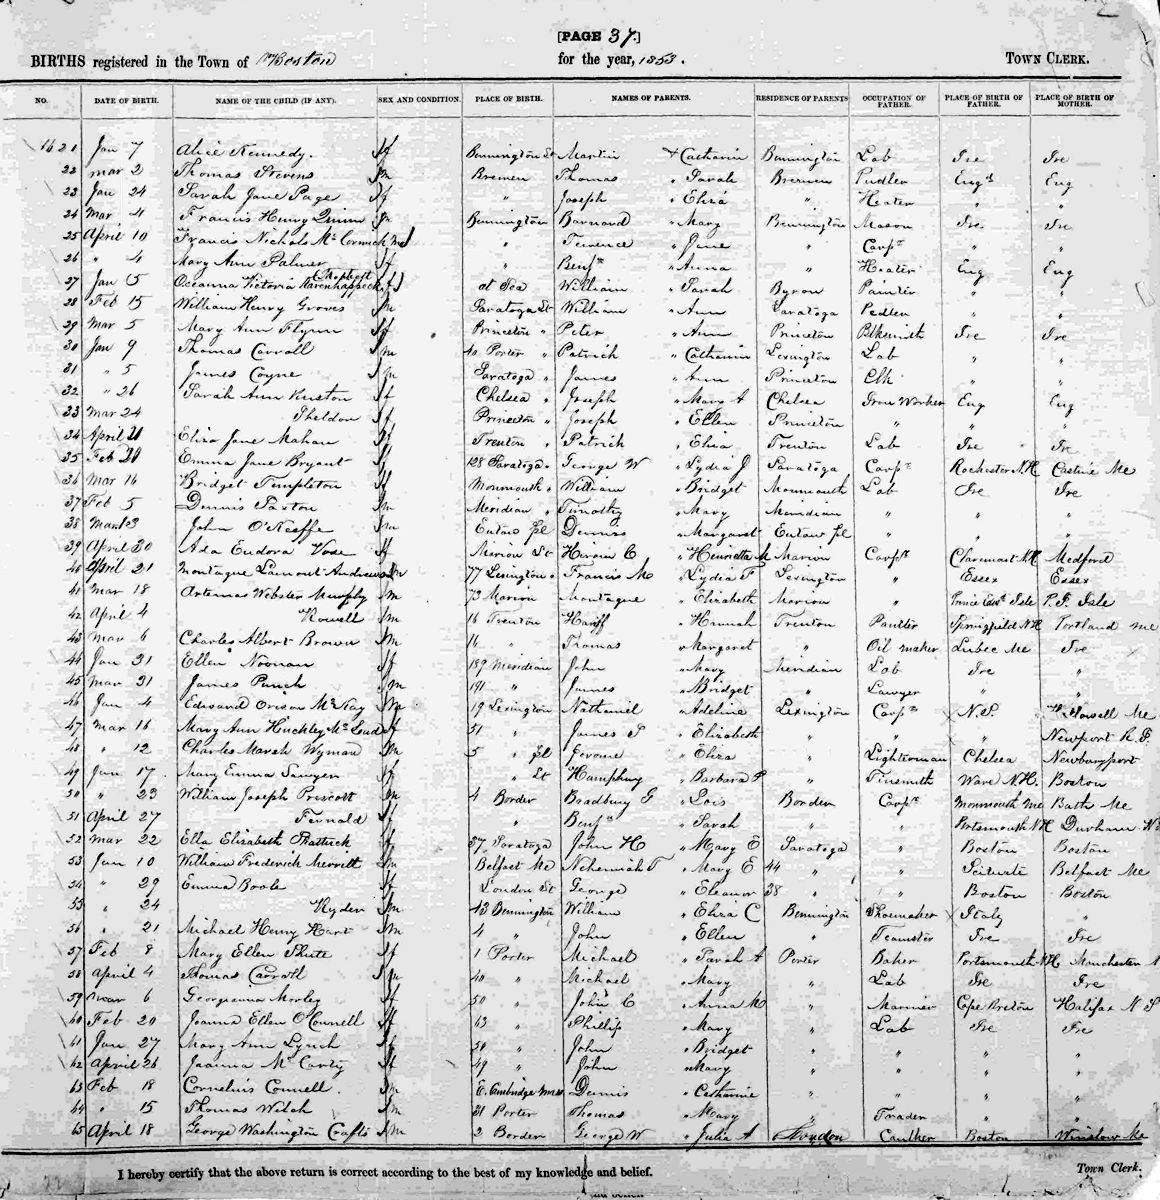 [PAGE 37.]
BIRTHS registered in the Town of Boston for the year, 1853. TOWN CLERK.
NO. DATE OF BIRTH. NAME OF THE CHILD (IF ANY). SEX AND CONDITION. PLACE OF BIRTH. NAMES OF PARENTS. RESIDENCE OF PARENTS OCCUPATION OF FATHER. PLACE OF BIRTH OF FATHER. PLACE OF BIRTH OF MOTHER.
1621 Jan 7 Alice Kennedy. f Bennington St Martin + Catharin Bennington Lab Ire Ire
22 Mar 2 Thomas Stevens m Bremen Thomas " Sarah Bremen Pudler Engd Eng
23 Jan 24 Sarah Jane Page f " Joseph " Eliza " Heater " "
24 Mar 4 Francis Henry Quinn m Bennington Barnard " Mary Bennington Mason Ire Ire
25 April 10 Francis Nichols Mc Cormick m " Terrence " Jane " Carpr " "
26 " 4 Mary Ann Palmer f " Benjn " Anna " Heater Eng Eng
27 Jan 5 Oceanna Victoria f at Sea William " Sarah Byron Painter " "
28 Feb 15 William Henry Groves m Saratoga St William " Ann Saratoga Pedler " "
29 Mar 5 Mary Ann Flynn f Princeton " Peter " Ann Princeton Blksmith Ire Ire
30 Jan 9 Thomas Carroll m 40 Porter " Patrick " Catharin Lexington Lab " "
31 " 5 James Coyne m Saratoga " James " Ann Princeton Clk " "
32 " 26 Sarah Ann f Chelsea " Joseph " Mary A Chelsea Iron Worker Eng Eng
33 Mar 24 Sheldon f Princeton " Joseph " Ellen Princeton " " "
34 April 21 Eliza Jane Mahan f Trenton " Patrick " Eliza Trenton Lab Ire Ire
35 Feb 20 Emma Jane Bryant f 128 Saratoga " George W " Lydia J Saratoga Carpr Rochester N.H. Castine Me
36 Mar 16 Bridget Templeton f Monmouth " William " Bridget Monmouth Lab Ire Ire
37 Feb 5 Dennis m Meridian " Timothy " Mary Meridian " " "
38 Mar 13 John O'Keeffe m Eutaw pl Dennis " Margaret Eutaw pl " " "
39 April 30 Ada Eudora Vose f Marion St Hiram C " Henrietta M Marion Carpr Claremont N.H. Medford
40 April 21 Montague Lamont Andrews m 77 Lexington " Francis M " Lydia F Lexington " Essex Essex
41 Mar 18 Artemas Webster Murphy m 73 Marion Montague " Elizabeth Marion " Prince Edwd Isle P. E. Isle
42 April 4 Rowell m 16 Trenton " Hannah Trenton Painter Springfield N.H. Portland Me
43 Mar 6 Charles Albert Brown m 16 " Thomas " Margaret " Oil maker Lubec Me Ire
44 Jan 31 Ellen Noonan f 189 Meridian John " Mary Meridian Lab Ire "
45 Mar 31 James Punch m 191 " James " Bridget " Lawyer " "
46 Jan 4 Edward Orison Mc Kay m 19 Lexington Nathaniel " Adeline Lexington Carpr N.S.
47 Mar 16 Mary Ann Huckley Mc Leod f 51 " James " Elizabeth " " " Newport
48 " 12 Charles Marsh Wyman m 5 " pl Jerome " Eliza " Lighterman Chelsea Newburyport
49 Jan 17 Mary Emma Sawyer f " St Humphrey " Barbara P " Tinsmith Ware N.H. Boston
50 " 23 William Joseph Prescott m 4 Border Bradbury G " Lois Border Carpr Monmouth Me Bath Me
51 April 27 Fernald f " Benjn " Sarah " " Portsmouth N.H. Durham N.H
52 Mar 22 Ella Elizabeth f 37 Saratoga John H " Mary E Saratoga " Boston Boston
53 Jan 10 William Frederick Merritt m Belfast Me Nehemiah T " Mary E 44 " " Scituate Belfast Me
54 " 29 Emma Boole f London St George " Eleanor 38 " " Boston Boston
55 " 24 Ryder m 43 Bennington William " Eliza C Bennington Shoemaker Italy "
56 " 21 Michael Henry Hart m 4 " John " Ellen " Teamster Ire Ire
57 Feb 8 Mary Ellen Shute f 1 Porter Michael " Sarah A Porter Baker Portsmouth N.H. Manchester N
58 April 4 Thomas Carroll m 40 " Michael " Mary " Lab Ire Ire
59 Mar 6 Georgianna Morley f 50 " John C " Anna M " Mariner Cape Breton Halifax N S
60 Feb 20 Joanna Ellen O'Connell f 63 " Phillip " Mary " Lab Ire Ire
61 Jan 27 Mary Ann Lynch f 50 " John " Bridget " " " "
62 April 26 Joanna Mc Carty f 49 " John " Mary " " " "
63 Feb 18 Cornelius Connell m E. Cambridge Mass Dennis " Catharine " " " "
64 " 15 Thomas Welch m 21 Porter Thomas " Mary " Trader " "
65 April 18 George Washington Crafts m 2 Border George W " Julia A London Caulker Boston Winslow Me
I hereby certify that the above return is correct according to the best of my knowledge and belief. Town Clerk.